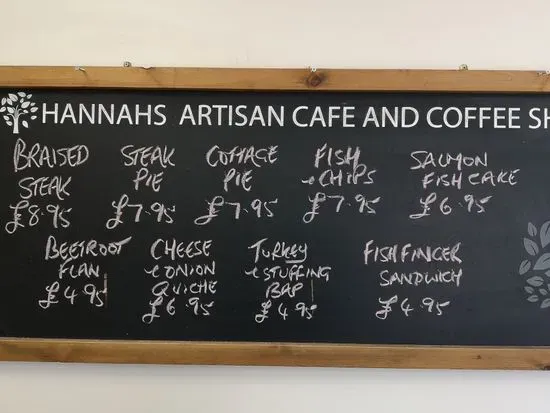 HANNAHS ARTISAN CAFE AND COFFEE SH
BRAISED
STEAK
£8.95
STEAK
PIE
£7.95
COTTAGE
PIE
£7.95
FISH
& CHIPS
£7.95
SALMON
FISHCAKE
£6.95
BEETROOT
FLAN
£4.95
CHEESE
& ONION
QUICHE
£6.95
TURKEY
& STUFFING
BAP
£4.95
FISHFINGER
SANDWICH
£4.95